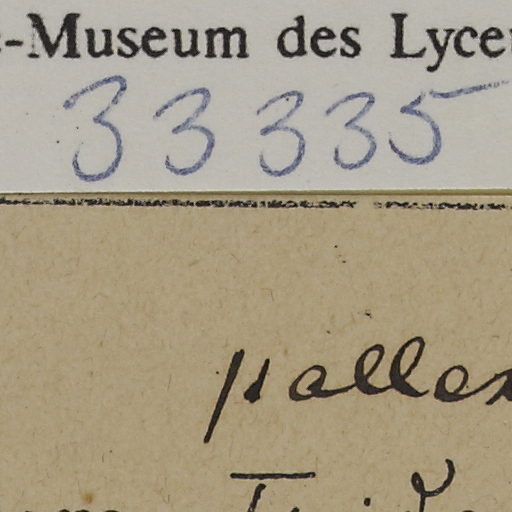 -Museum des Lyce
33335
palle